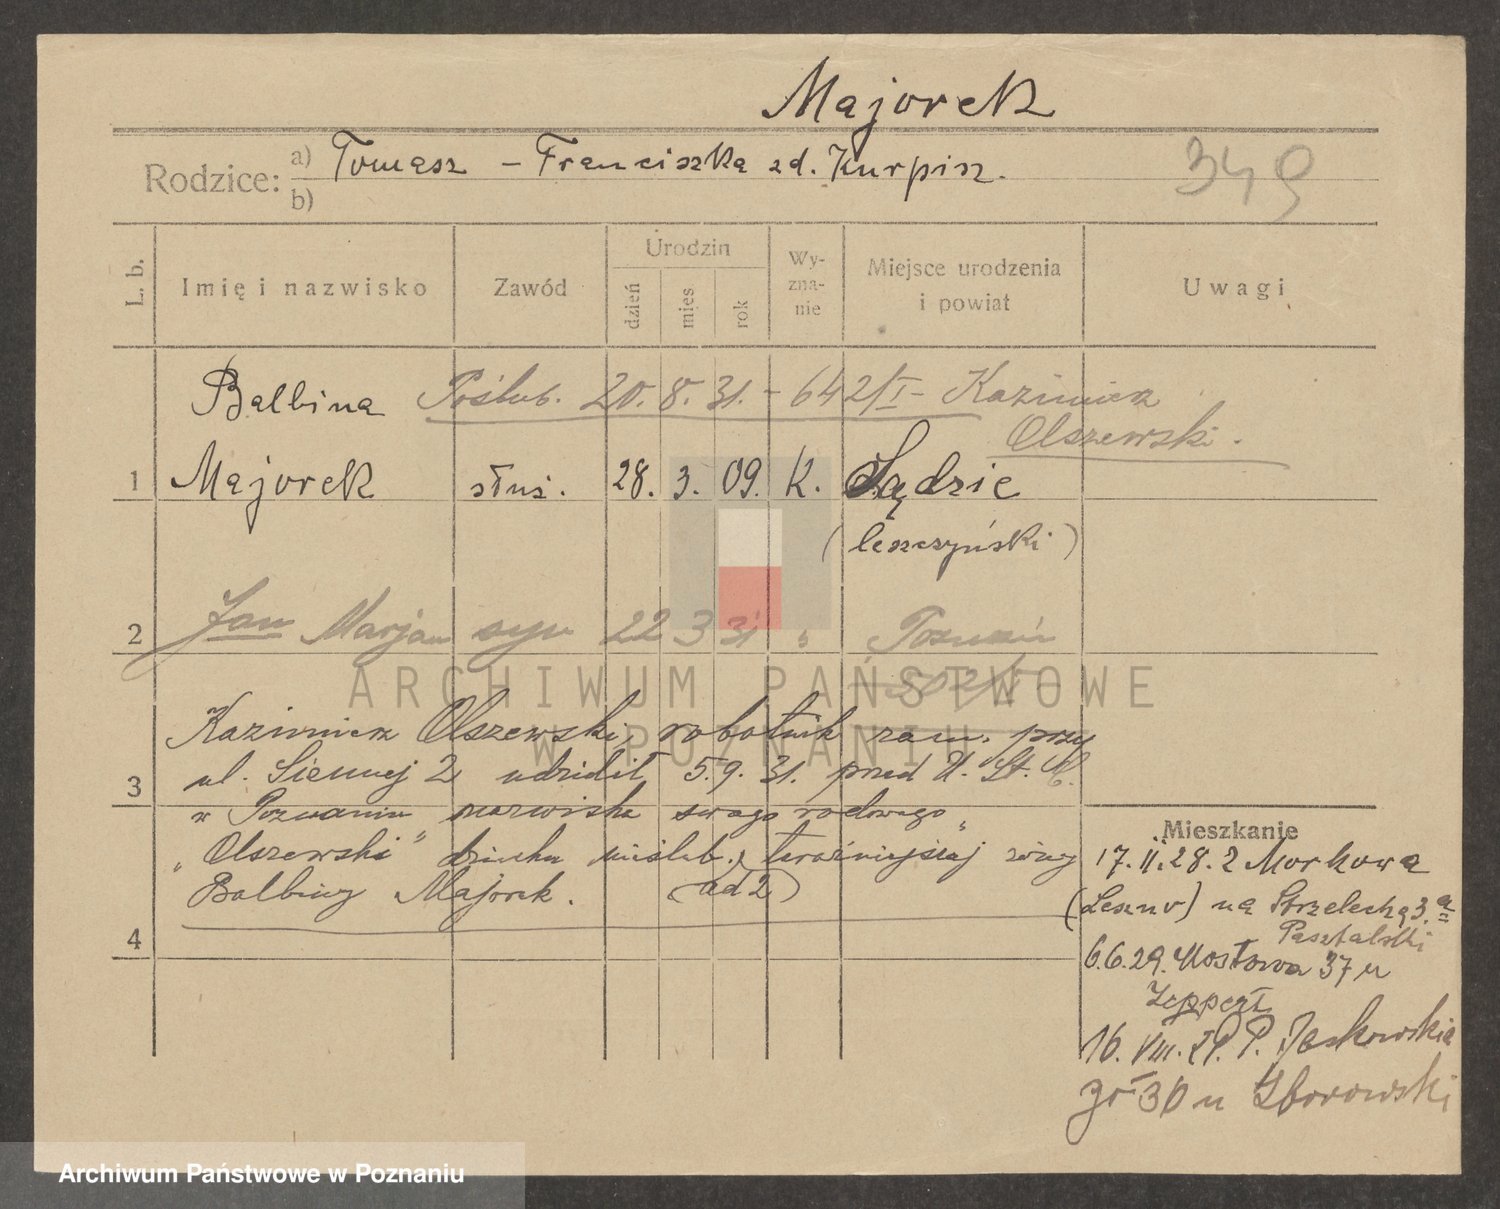 Majorek
Rodzice: a) Tomasz – Franciszka zd. Kurpisz.
b)
349
L. b.
Imię i nazwisko
Zawód
Urodzin
dzień
mies
rok
Wy-
zna-
nie
Miejsce urodzenia
i powiat
Uwagi
Balbina Poślub. 20. 8. 31. – 642/I – Kazimierz
Olszewski.
1 Majorek służ. 28. 3. 09. K. Sądzie
(leszczyński)
2 Jan Marjan syn 22 3 31 " Poznań
ARCHIWUM PAŃSTWOWE
W POZNANIU
Kazimierz Olszewski, robotnik zam. przy
ul. Siennej 2 udzielił 5. 9. 31. przed U. St. C.
3
w Poznaniu nazwiska swego rodowego
"Olszewski" dziecku nieślub. teraźniejszej żony
Balbiny Majorek. (ad 2)
4
Mieszkanie
17. II. 28. z Morkowa
(Leszno) na Strzelecką 3.a
6.6.29. Mostowa 37 u
Zeppert
16. VIII. P. Jaskowskia
30 u Zborowski
Archiwum Państwowe w Poznaniu